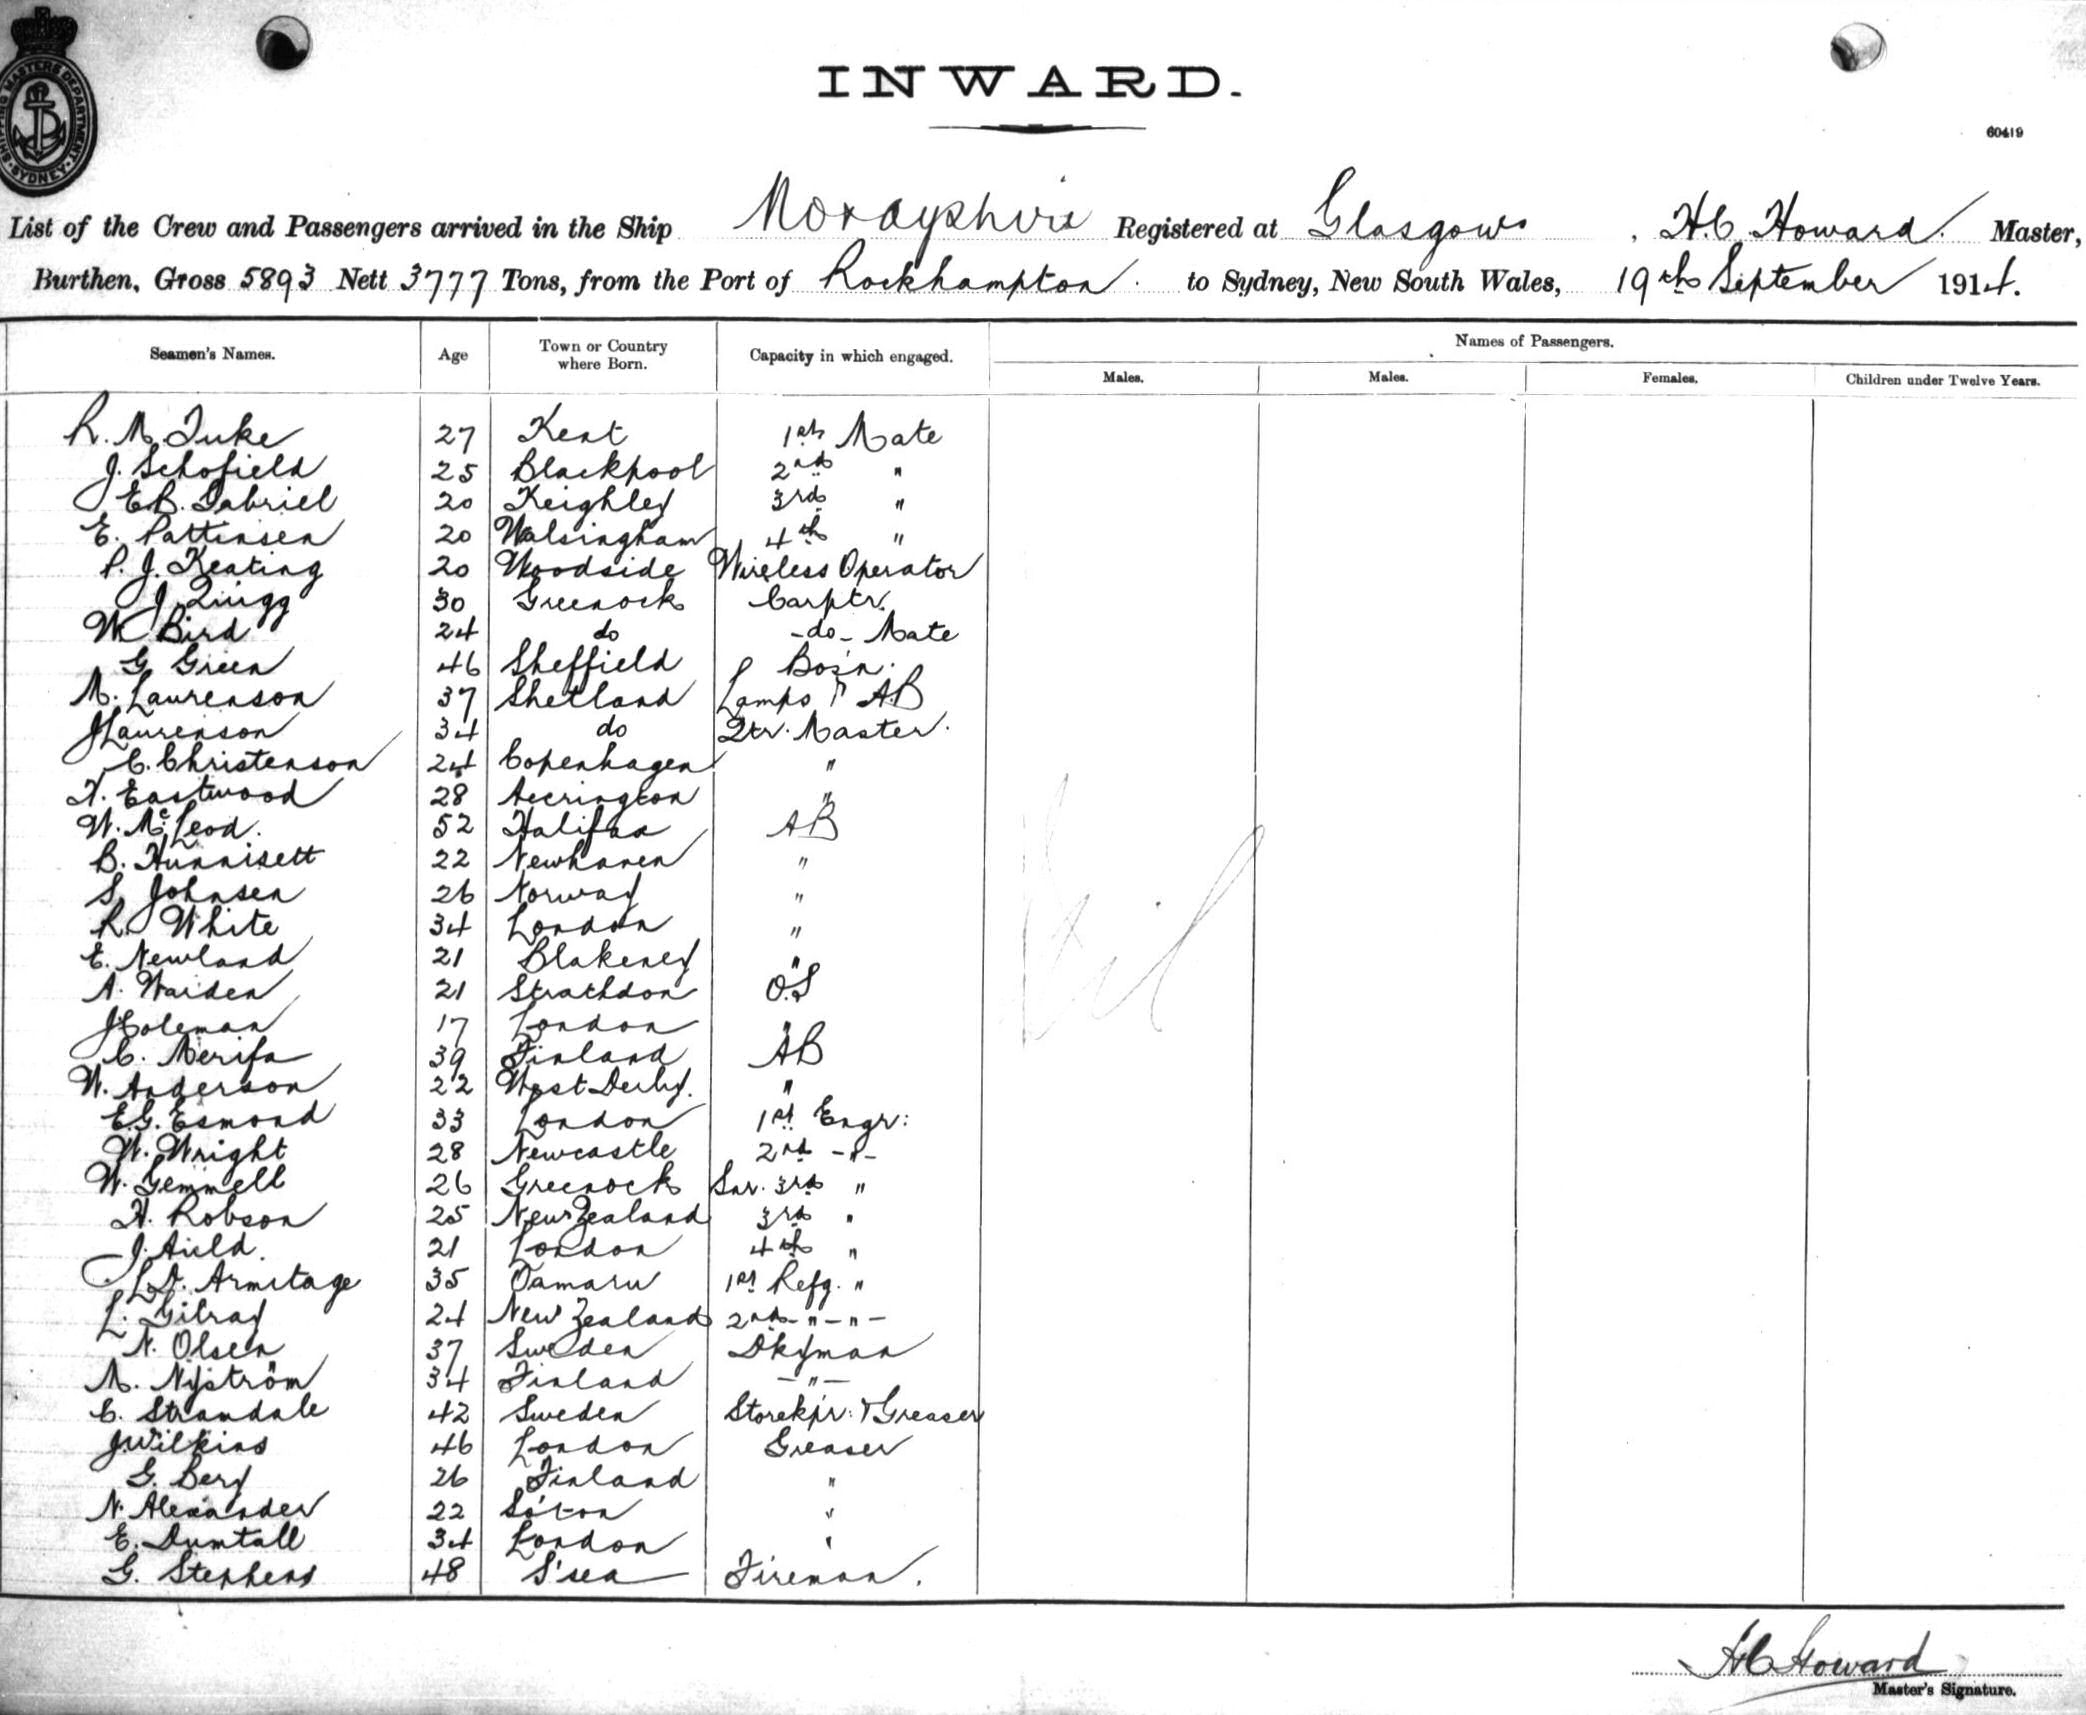 SHIPPING MASTERS DEPARTMENT. SYDNEY.
INWARD.
60419
List of the Crew and Passengers arrived in the Ship Morayshire Registered at Glasgow, H.C. Howard. Master,
Burthen, Gross 5893 Nett 3777 Tons, from the Port of Rockhampton. to Sydney, New South Wales, 19th September 1914.
Seamen's Names. Age Town or Country where Born. Capacity in which engaged. Names of Passengers.
Males. Males. Females. Children under Twelve Years.
R. M. Tuke 27 Kent 1st Mate
J. Schofield 25 Blackpool 2nd "
E.B. Gabriel 20 Keighley 3rd "
E. Pattinsen 20 Walsingham 4th "
P. J. Keating 20 Woodside Wireless Operator
J. Quigg 30 Greenock Carptr.
W. Bird 24 do -do- Mate
G. Green 46 Sheffield Bos'n.
M. Laurenson 37 Shetland Lamps & AB
J. Laurenson 34 do Qtr. Master.
C. Christenson 24 Copenhagen "
H. Eastwood 28 Accrington "
W. McLeod. 52 Halifax AB
B. Hunnisett 22 Newhaven "
S. Johnsen 26 Norway "
R. White 34 London "
E. Newland 21 Blakeney "
A. Warden 21 Strathdon O.S
J. Coleman 17 London "
C. Merifa 39 Finland AB
W. Anderson 22 West Derby. "
E.G. Esmond 33 London 1st Engr:
W. Wright 28 Newcastle 2nd -"-
W. Gemmell 26 Greenock Snr. 3rd "
H. Robson 25 New Zealand 3rd "
J. Auld. 21 London 4th "
L.A. Armitage 35 Oamaru 1st Refg. "
L. Gilray 24 New Zealand 2nd -"-"-
N. Olsen 37 Sweden Dkyman
M. Nyström 34 Finland -"-
C. Strandale 42 Sweden Storekpr: & Greaser
J. Wilkins 46 London Greaser
G. Berg 26 Finland "
N. Alexander 22 So'ton "
E. Dumtall 34 London "
G. Stephens 48 S'sea Fireman.
Nil
HC Howard
Master's Signature.